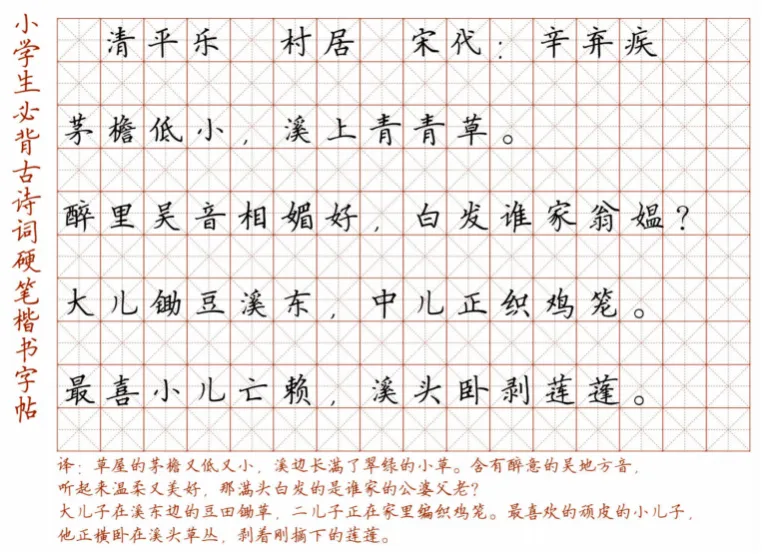 小学生必背古诗词硬笔楷书字帖
清平乐 村居 宋代：辛弃疾
茅檐低小，溪上青青草。
醉里吴音相媚好，白发谁家翁媪？
大儿锄豆溪东，中儿正织鸡笼。
最喜小儿亡赖，溪头卧剥莲蓬。
译：草屋的茅檐又低又小，溪边长满了翠绿的小草。含有醉意的吴地方音，
听起来温柔又美好，那满头白发的是谁家的公婆父老？
大儿子在溪东边的豆田锄草，二儿子正在家里编织鸡笼。最喜欢的顽皮的小儿子，
他正横卧在溪头草丛，剥着刚摘下的莲蓬。